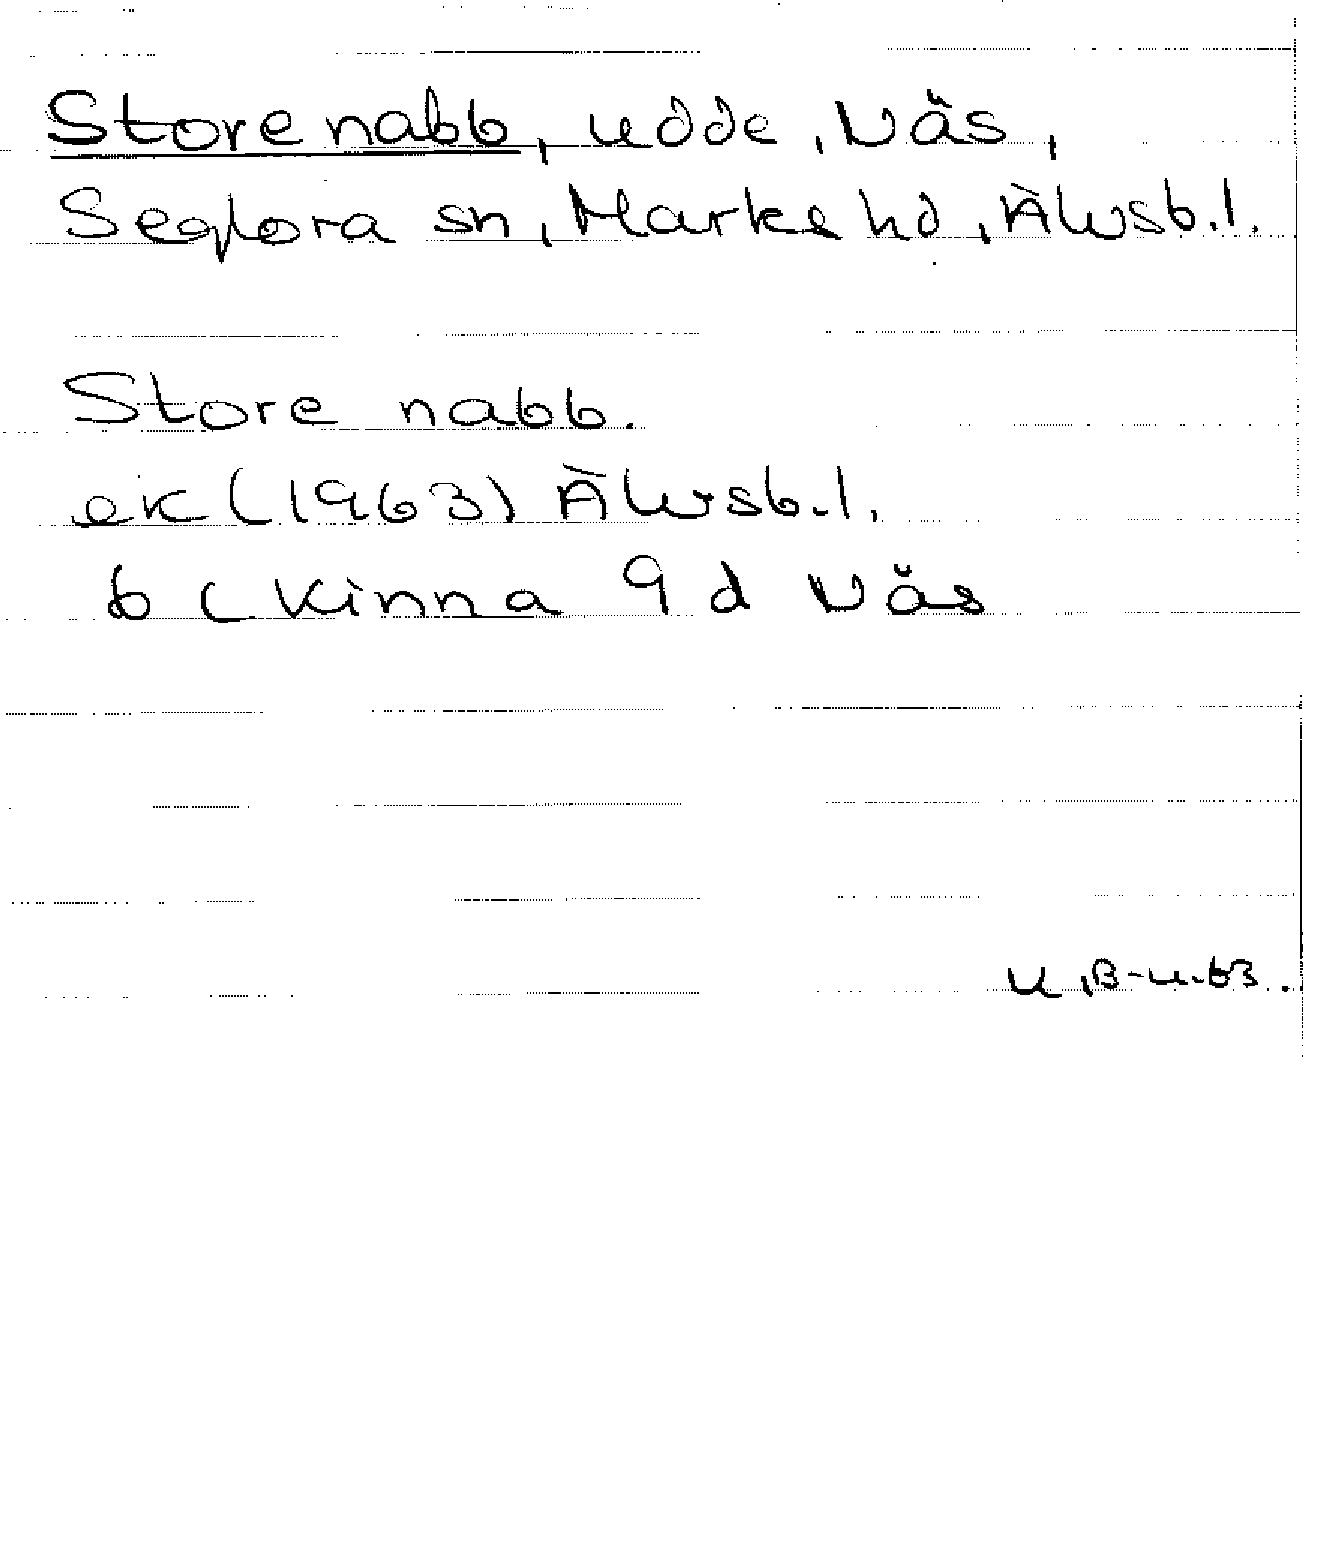 Store nabb, udde, Näs,
Seglora sn, Marks hd, Älvsb.l.
Store nabb.
ek (1963) Älvsb.l.
6 C Kinna 9 d Näs